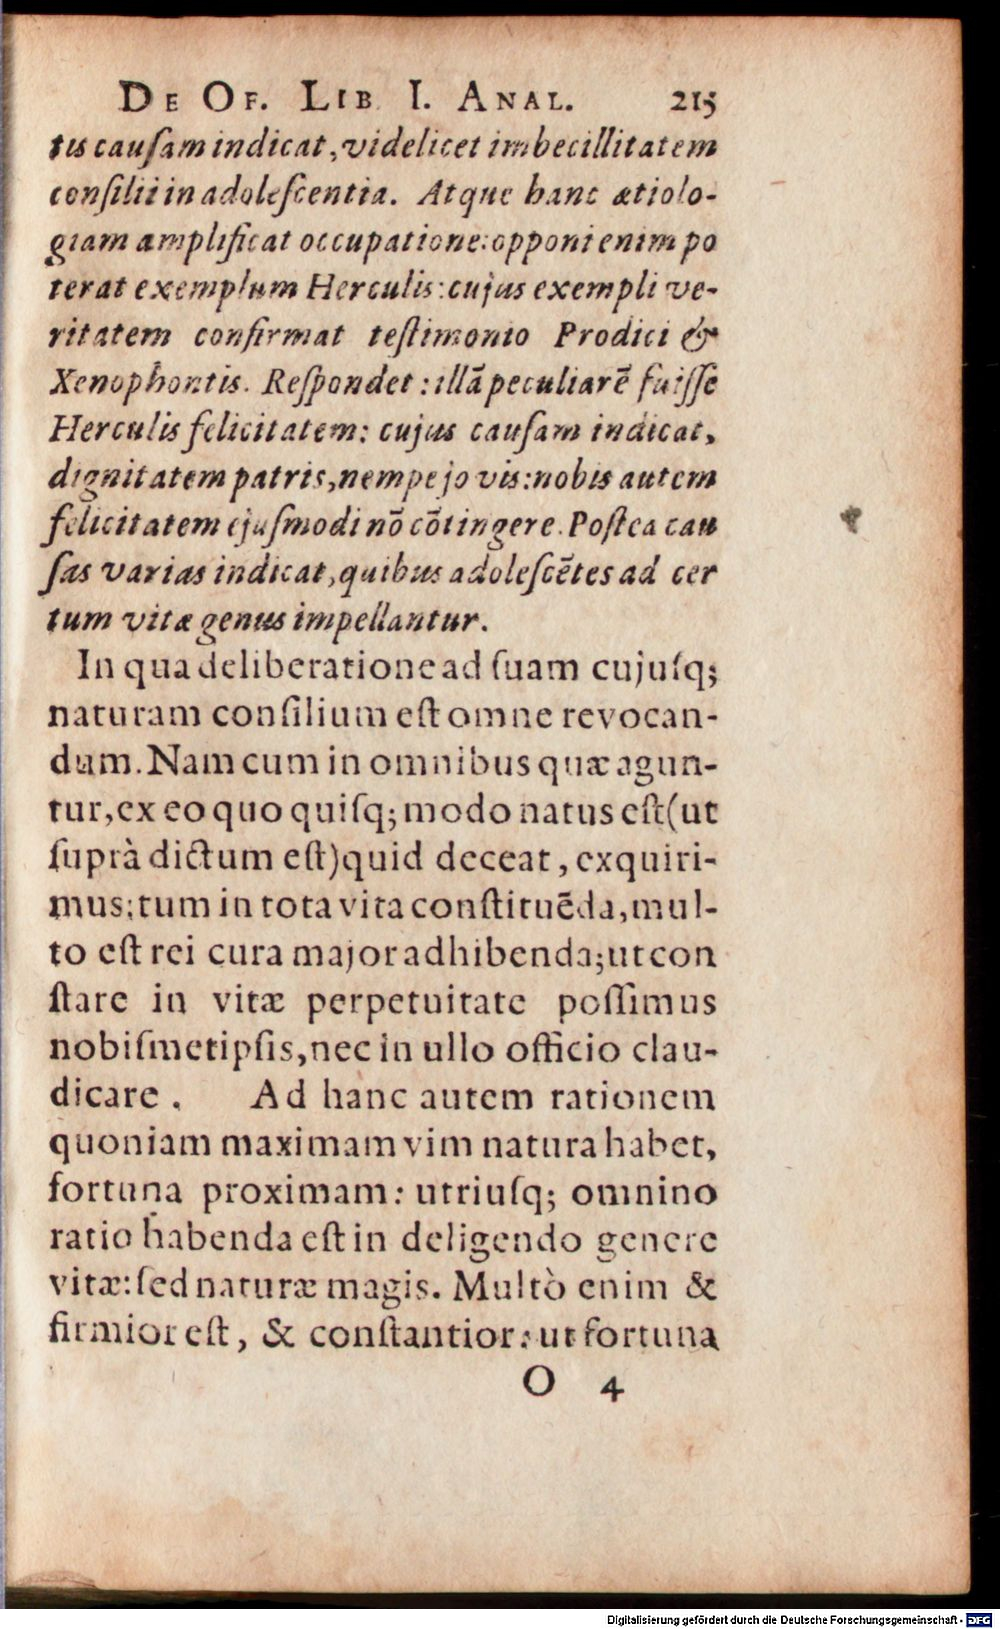 DE OF. LIB. I. ANAL. 215
tis cauſam indicat, videlicet imbecillitatem
conſilii in adoleſcentia. Atque hanc ætiolo-
giam amplificat occupatione: opponi enim po
terat exemplum Herculis: cujus exempli ve-
ritatem confirmat teſtimonio Prodici &
Xenophontis. Reſpondet: illā peculiarē fuiſſe
Herculis felicitatem: cujus cauſam indicat,
dignitatem patris, nempe jovis: nobis autem
felicitatem ejuſmodi nō cōtingere. Poſtea cau
ſas varias indicat, quibus adoleſcētes ad cer
tum vitæ genus impellantur.
In qua deliberatione ad ſuam cujuſq;
naturam conſilium eſt omne revocan-
dum. Nam cum in omnibus quæ agun-
tur, ex eo quo quiſq; modo natus eſt (ut
ſuprà dictum eſt) quid deceat, exquiri-
mus: tum in tota vita conſtituēda, mul-
to eſt rei cura major adhibenda; ut con
ſtare in vitæ perpetuitate poſſimus
nobiſmetipſis, nec in ullo officio clau-
dicare. Ad hanc autem rationem
quoniam maximam vim natura habet,
fortuna proximam: utriuſq; omnino
ratio habenda eſt in deligendo genere
vitæ: ſed naturæ magis. Multò enim &
firmior eſt, & conſtantior: ut fortuna
O 4
Digitalisierung gefördert durch die Deutsche Forschungsgemeinschaft - DFG